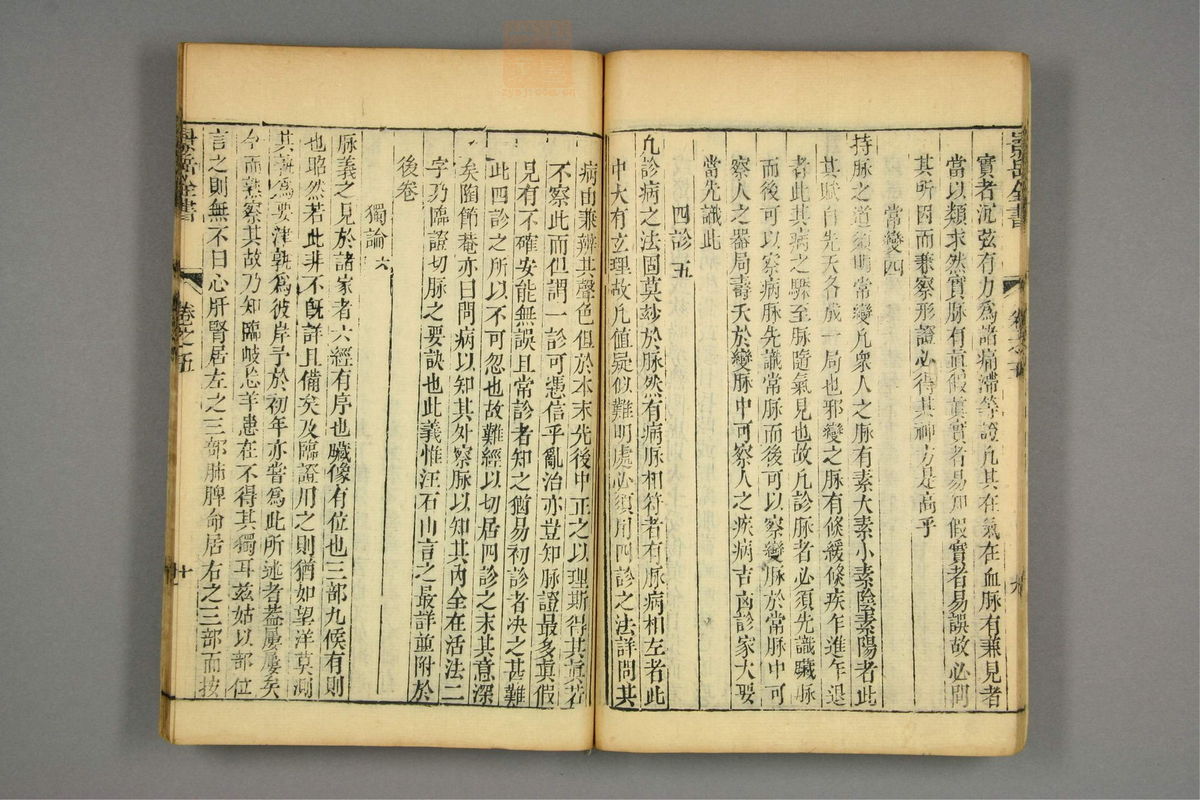 景岳全書
卷之五
九
實者沉弦有力為諸痛滯等證凡其在氣在血脉有兼見者
當以類求然實脉有眞假眞實者易知假實者易誤故必問
其所因而兼察形證必得其神方是高乎
常變四
持脉之道須明常變凡衆人之脉有素大素小素陰素陽者此
其賦自先天各成一局也邪變之脉有倏緩倏疾乍進乍退
者此其病之驟至脉隨氣見也故凡診脉者必須先識臟脉
而後可以察病脉先識常脉而後可以察變脉於常脉中可
察人之器局壽夭於變脉中可察人之疾病吉凶診家大要
當先識此
四診五
凡診病之法固莫玅於脉然有病脉相符者有脉病相左者此
中大有玄理故凡值疑似難明處必須用四診之法詳問其
病由兼辨其聲色但於本末先後中正之以理斯得其眞若
不察此而但謂一診可憑信乎亂治亦豈知脉證最多眞假
見有不確安能無誤且常診者知之猶易初診者決之甚難
此四診之所以不可忽也故難經以切居四診之末其意深
矣陶節菴亦曰問病以知其外察脉以知其內全在活法二
字乃臨證切脉之要訣也此義惟汪石山言之最詳並附於
後卷
獨論六
脉義之見於諸家者六經有序也臟像有位也三部九候有則
也昭然若此非不旣詳且備矣及臨證用之則猶如望洋莫測
其孰為要津孰為彼岸予於初年亦嘗為此所迷者葢屢屢矣
今而熟察其故乃知臨岐忘羊患在不得其獨耳茲姑以部位
言之則無不曰心肝腎居左之三部肺脾命居右之三部而按
景岳全書
卷之五
十